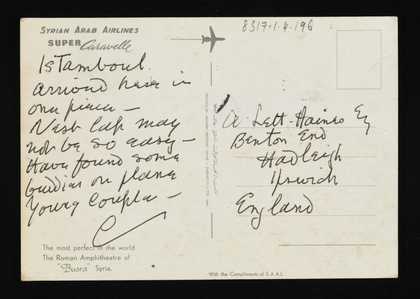 8317.1.4.196
SYRIAN ARAB AIRLINES
SUPER Caravelle
Istamboul.
arrived here in
one piece —
Next lap may
not be so easy —
Have found some
on plane
Young couple —
C
The most perfect in the world
The Roman Amphitheatre of
"Busra" Syria.
A. Lett-Haines Eq
Benton End
Hadleigh
Ipswich
England
With the Compliments of S.A.A.L.